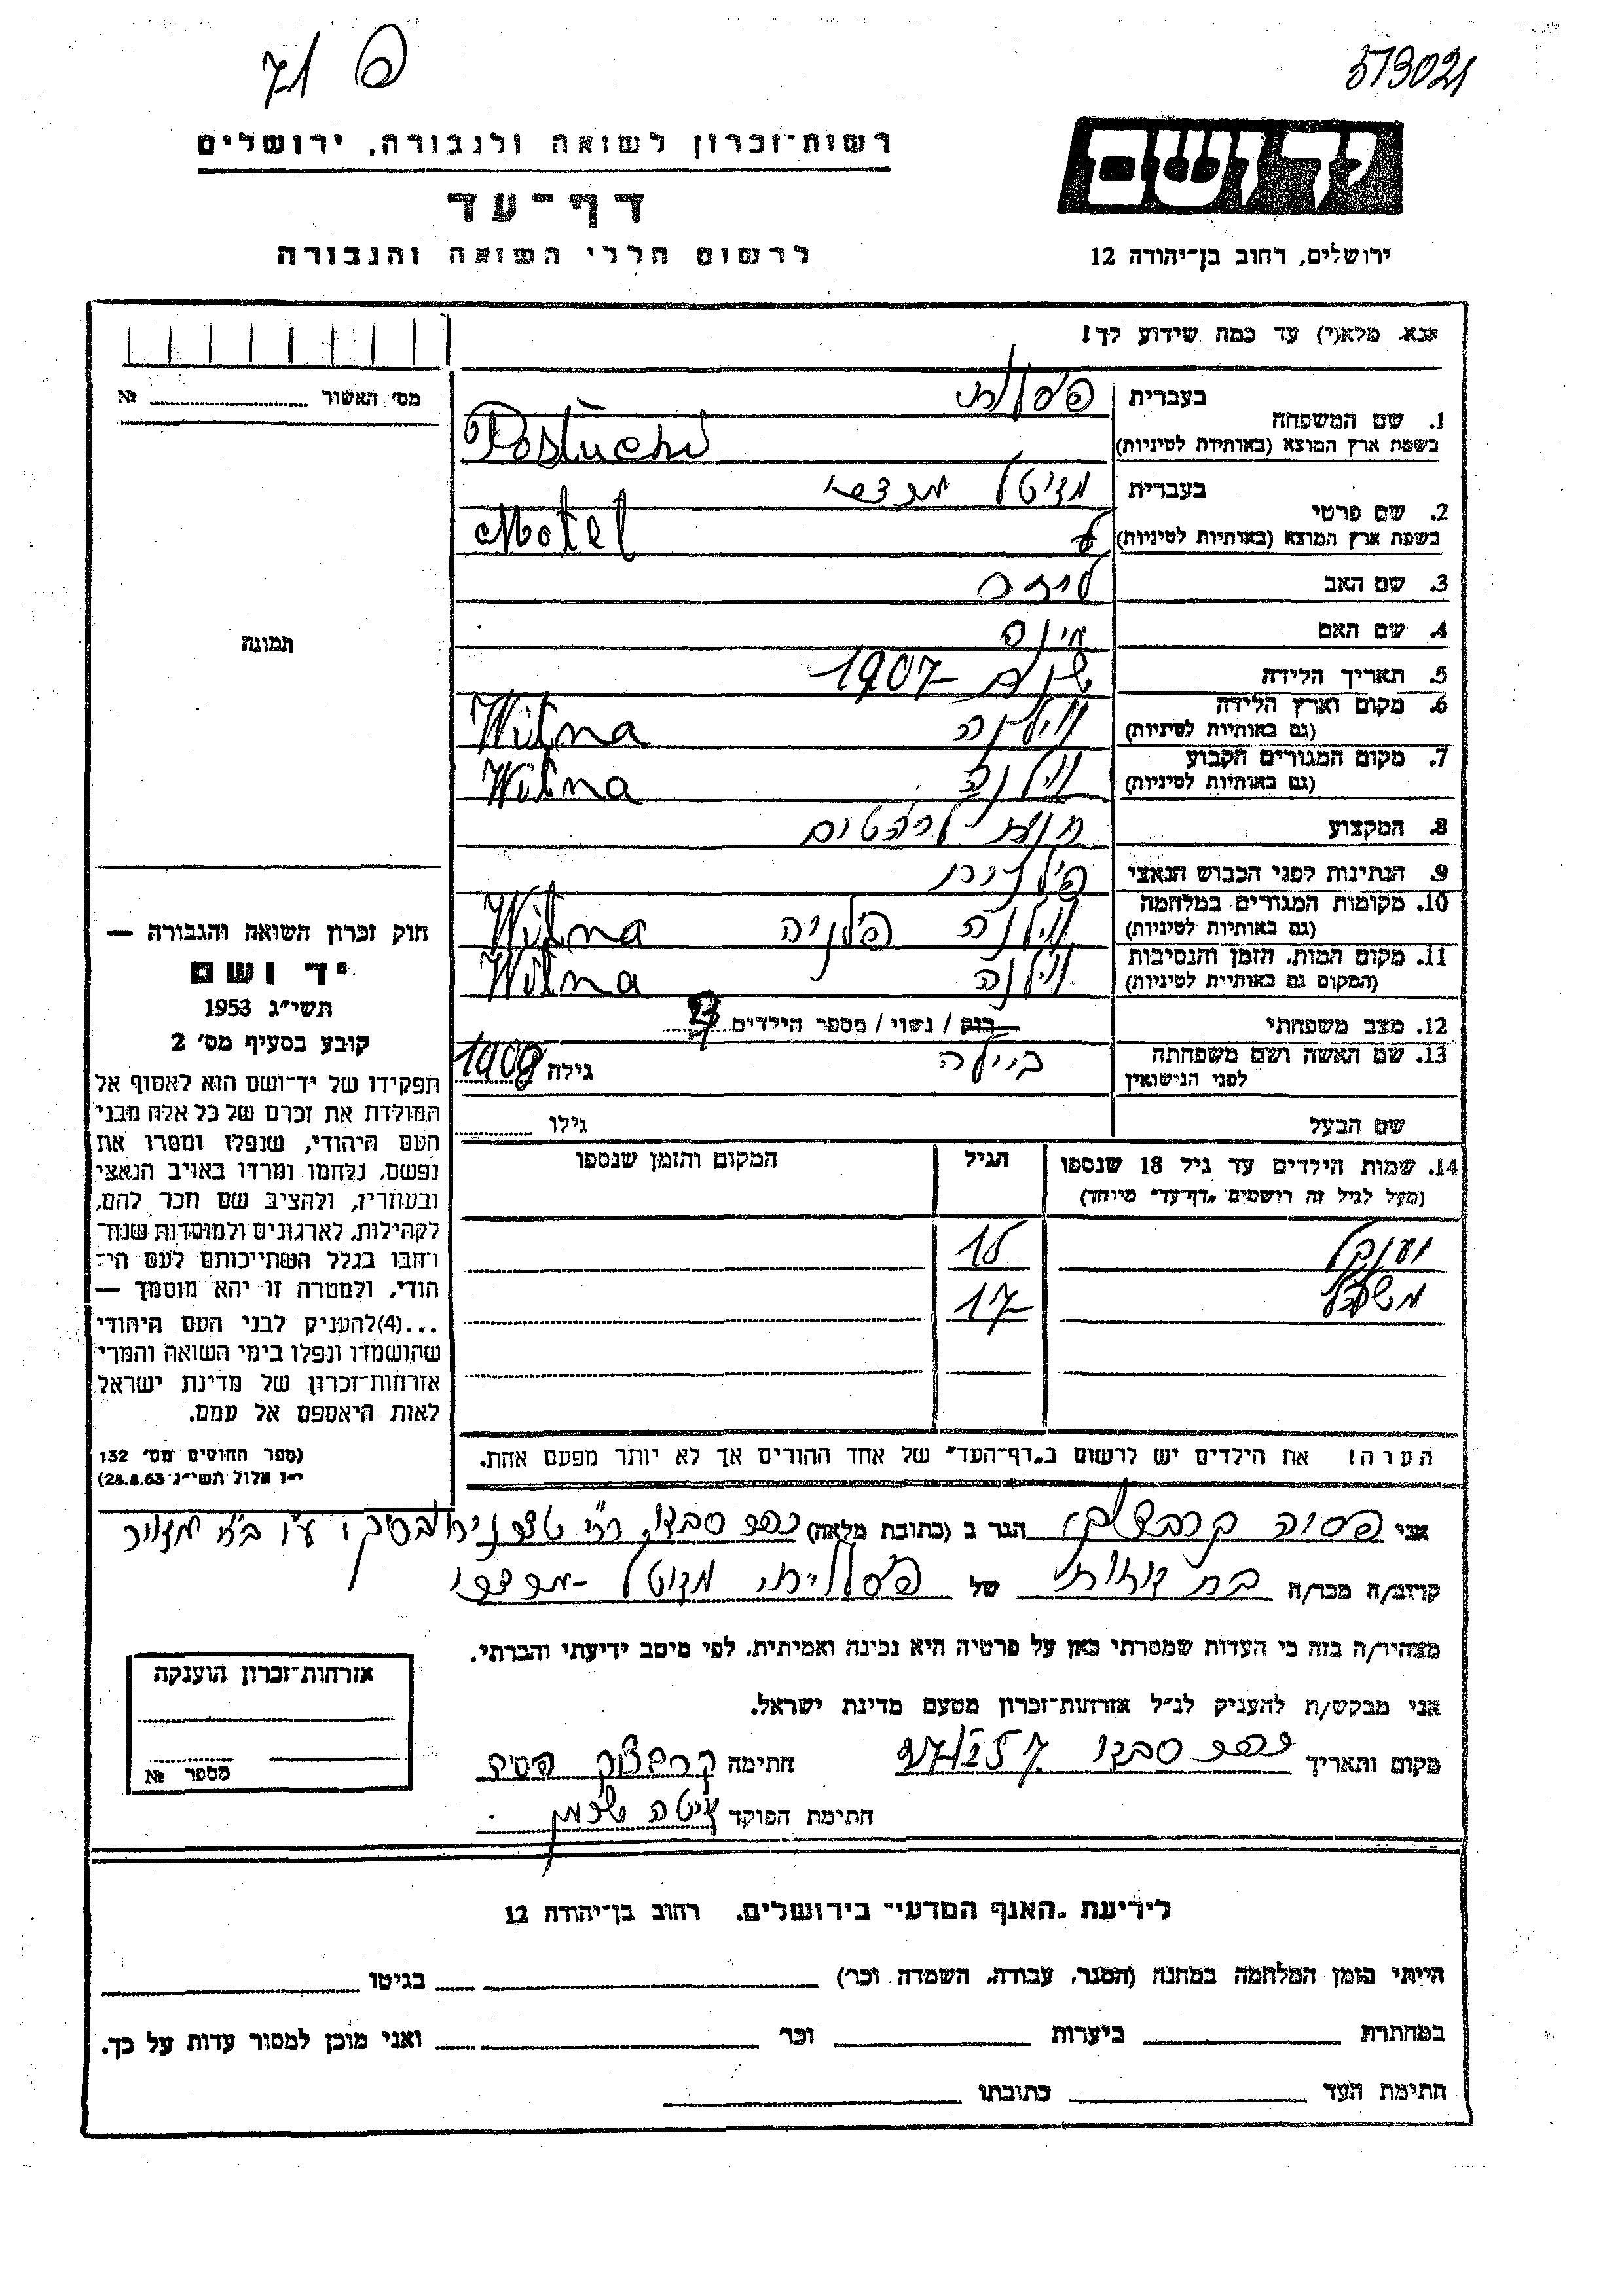 71 פ
573021
רשות־זכרון לשואה ולגבורה, ירושלים
יד ושם
דף־עד
לרשום חללי השואה והגבורה
ירושלים, רחוב בן־יהודה 12
אנא מלא(י) עד כמה שידוע לך!
מס' האשור № ........
1. שם המשפחה
בעברית
בשפת ארץ המוצא (באותיות לטיניות) Postuchi
2. שם פרטי
בעברית מוטל מרדכי
בשפת ארץ המוצא (באותיות לטיניות) Motel
3. שם האב
4. שם האם
5. תאריך הלידה 1907
6. מקום וארץ הלידה (גם באותיות לטיניות) ווילנה Wilna
7. מקום המגורים הקבוע (גם באותיות לטיניות) ווילנה Wilna
8. המקצוע חנות לרהטים
9. הנתינות לפני הכבוש הנאצי
10. מקומות המגורים במלחמה (גם באותיות לטיניות) ווילנה פולניה Wilna
11. מקום המות, הזמן והנסיבות (המקום גם באותיית לטיניות) ווילנה Wilna
12. מצב משפחתי רווק / נשוי / מספר הילדים
13. שם האשה ושם משפחתה לפני הנישואין ביילה גילה 1909
שם הבעל גילו ........
14. שמות הילדים עד גיל 18 שנספו (מעל לגיל זה רושמים "דף־עד" מיוחד) הגיל המקום והזמן שנספו
יענקל 15
17
הערה! את הילדים יש לרשום ב"דף־העד" של אחד ההורים אך לא יותר מפעם אחת.
תמונה
חוק זכרון השואה והגבורה —
יד ושם
תשי"ג 1953
קובע בסעיף מס' 2
תפקידו של יד־ושם הוא לאסוף אל
המולדת את זכרם של כל אלה מבני
העם היהודי, שנפלו ומסרו את
נפשם, נלחמו ומרדו באויב הנאצי
ובעוזריו, ולהציב שם וזכר להם,
לקהילות, לארגונים ולמוסדות שנח־
רחבו בגלל השתייכותם לעם הי־
הודי, ולמטרה זו יהא מוסמך —
...(4) להעניק לבני העם היהודי
שהושמדו ונפלו בימי השואה והמרי
אזרחות־זכרון של מדינת ישראל
לאות היאספם אל עמם.
(ספר החוקים מס' 132
י"ז אלול תשי"ג 28.8.53)
אני הגר ב (כתובת מלאה)
קרוב/ה מכר/ה בת דודתי של מוטל - מרדכי
מצהיר/ה בזה כי העדות שמסרתי כאן על פרטיה היא נכונה ואמיתית, לפי מיטב ידיעתי והכרתי.
אני מבקש/ת להעניק לנ"ל אזרחות־זכרון מטעם מדינת ישראל.
מקום ותאריך חתימה
חתימת הפוקד
אזרחות־זכרון הוענקה
מספר №
לידיעת "האגף המדעי" בירושלים, רחוב בן־יהודה 12
הייתי בזמן המלחמה במחנה (הסגר, עבודה, השמדה וכו') בגיטו
במחתרת ביערות וכו' ואני מוכן למסור עדות על כך.
חתימת העד כתובתו